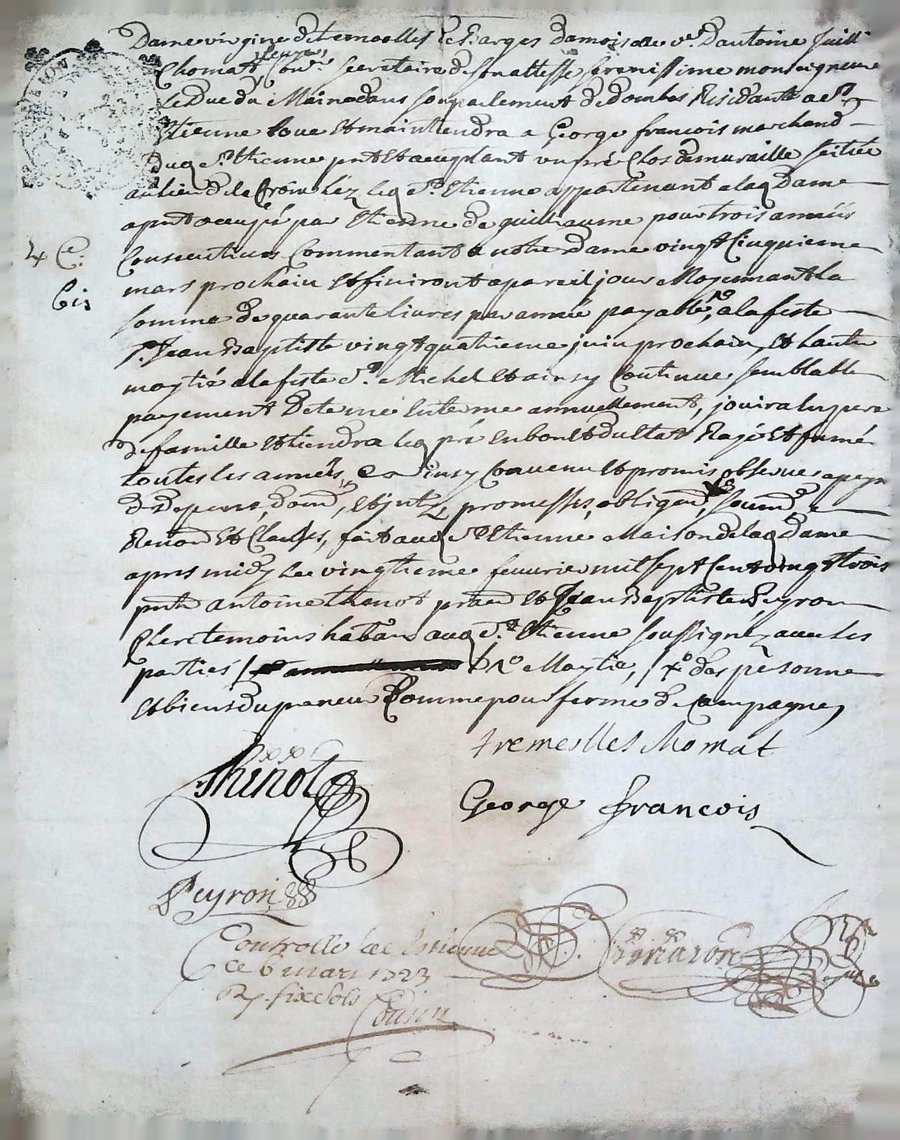 Dame virgine de tremolles de Barges damoiselle ve. d'antoine Juill
Chomat Con.er Secretaire de son altesse serenissime monseigneur
Le Duc du Maine dans son parlement de dombes Residante a St
Etienne Loue et maintendra a George francois marchand
dud St Etienne pnt et acceptant un pré Clos de muraille scitué
au lieu de la Croix lez led St Etienne appartenant a lad Dame
a pnt occupé par Etienne de guillaume pour trois années
Consecutives Commentant a notre dame vingt Cinquieme
4 C.
mars prochain et finiront a pareil jour Moyennant la
bis
somme de quarante livres par année payable, a la feste
St. Jean Baptiste vingt quatrieme juin prochain, et l'autre
moytié a la feste St Michel et ainsy Continue semblable
payement de terme en terme annuellement, jouira en pere
de famille et tiendra led pré en bon et du Estat Razé et fumé
toutes les années, Ca ainsy Convenu et promis observer a peyne
de Depens, dom, et jntz, promesses, obligaõn, soumõn,
Renonõn et Clauses, fait aud St Etienne Maison de lad Dame
apres midy Le vingtieme fevrier mil sept Cent vingt trois
pnt antoine thenot praticien et Jean Baptiste Peyron
Clerc temoins habans aud St Etienne soussignez avec les
parties / Moytie, / des personne
et biens du preneur Comme pour ferme de Campagne,
tremolles Momat
Thinot
George francois
Peyron
Controllé a St Etienne
ce 6 mars 1723
R. six sols